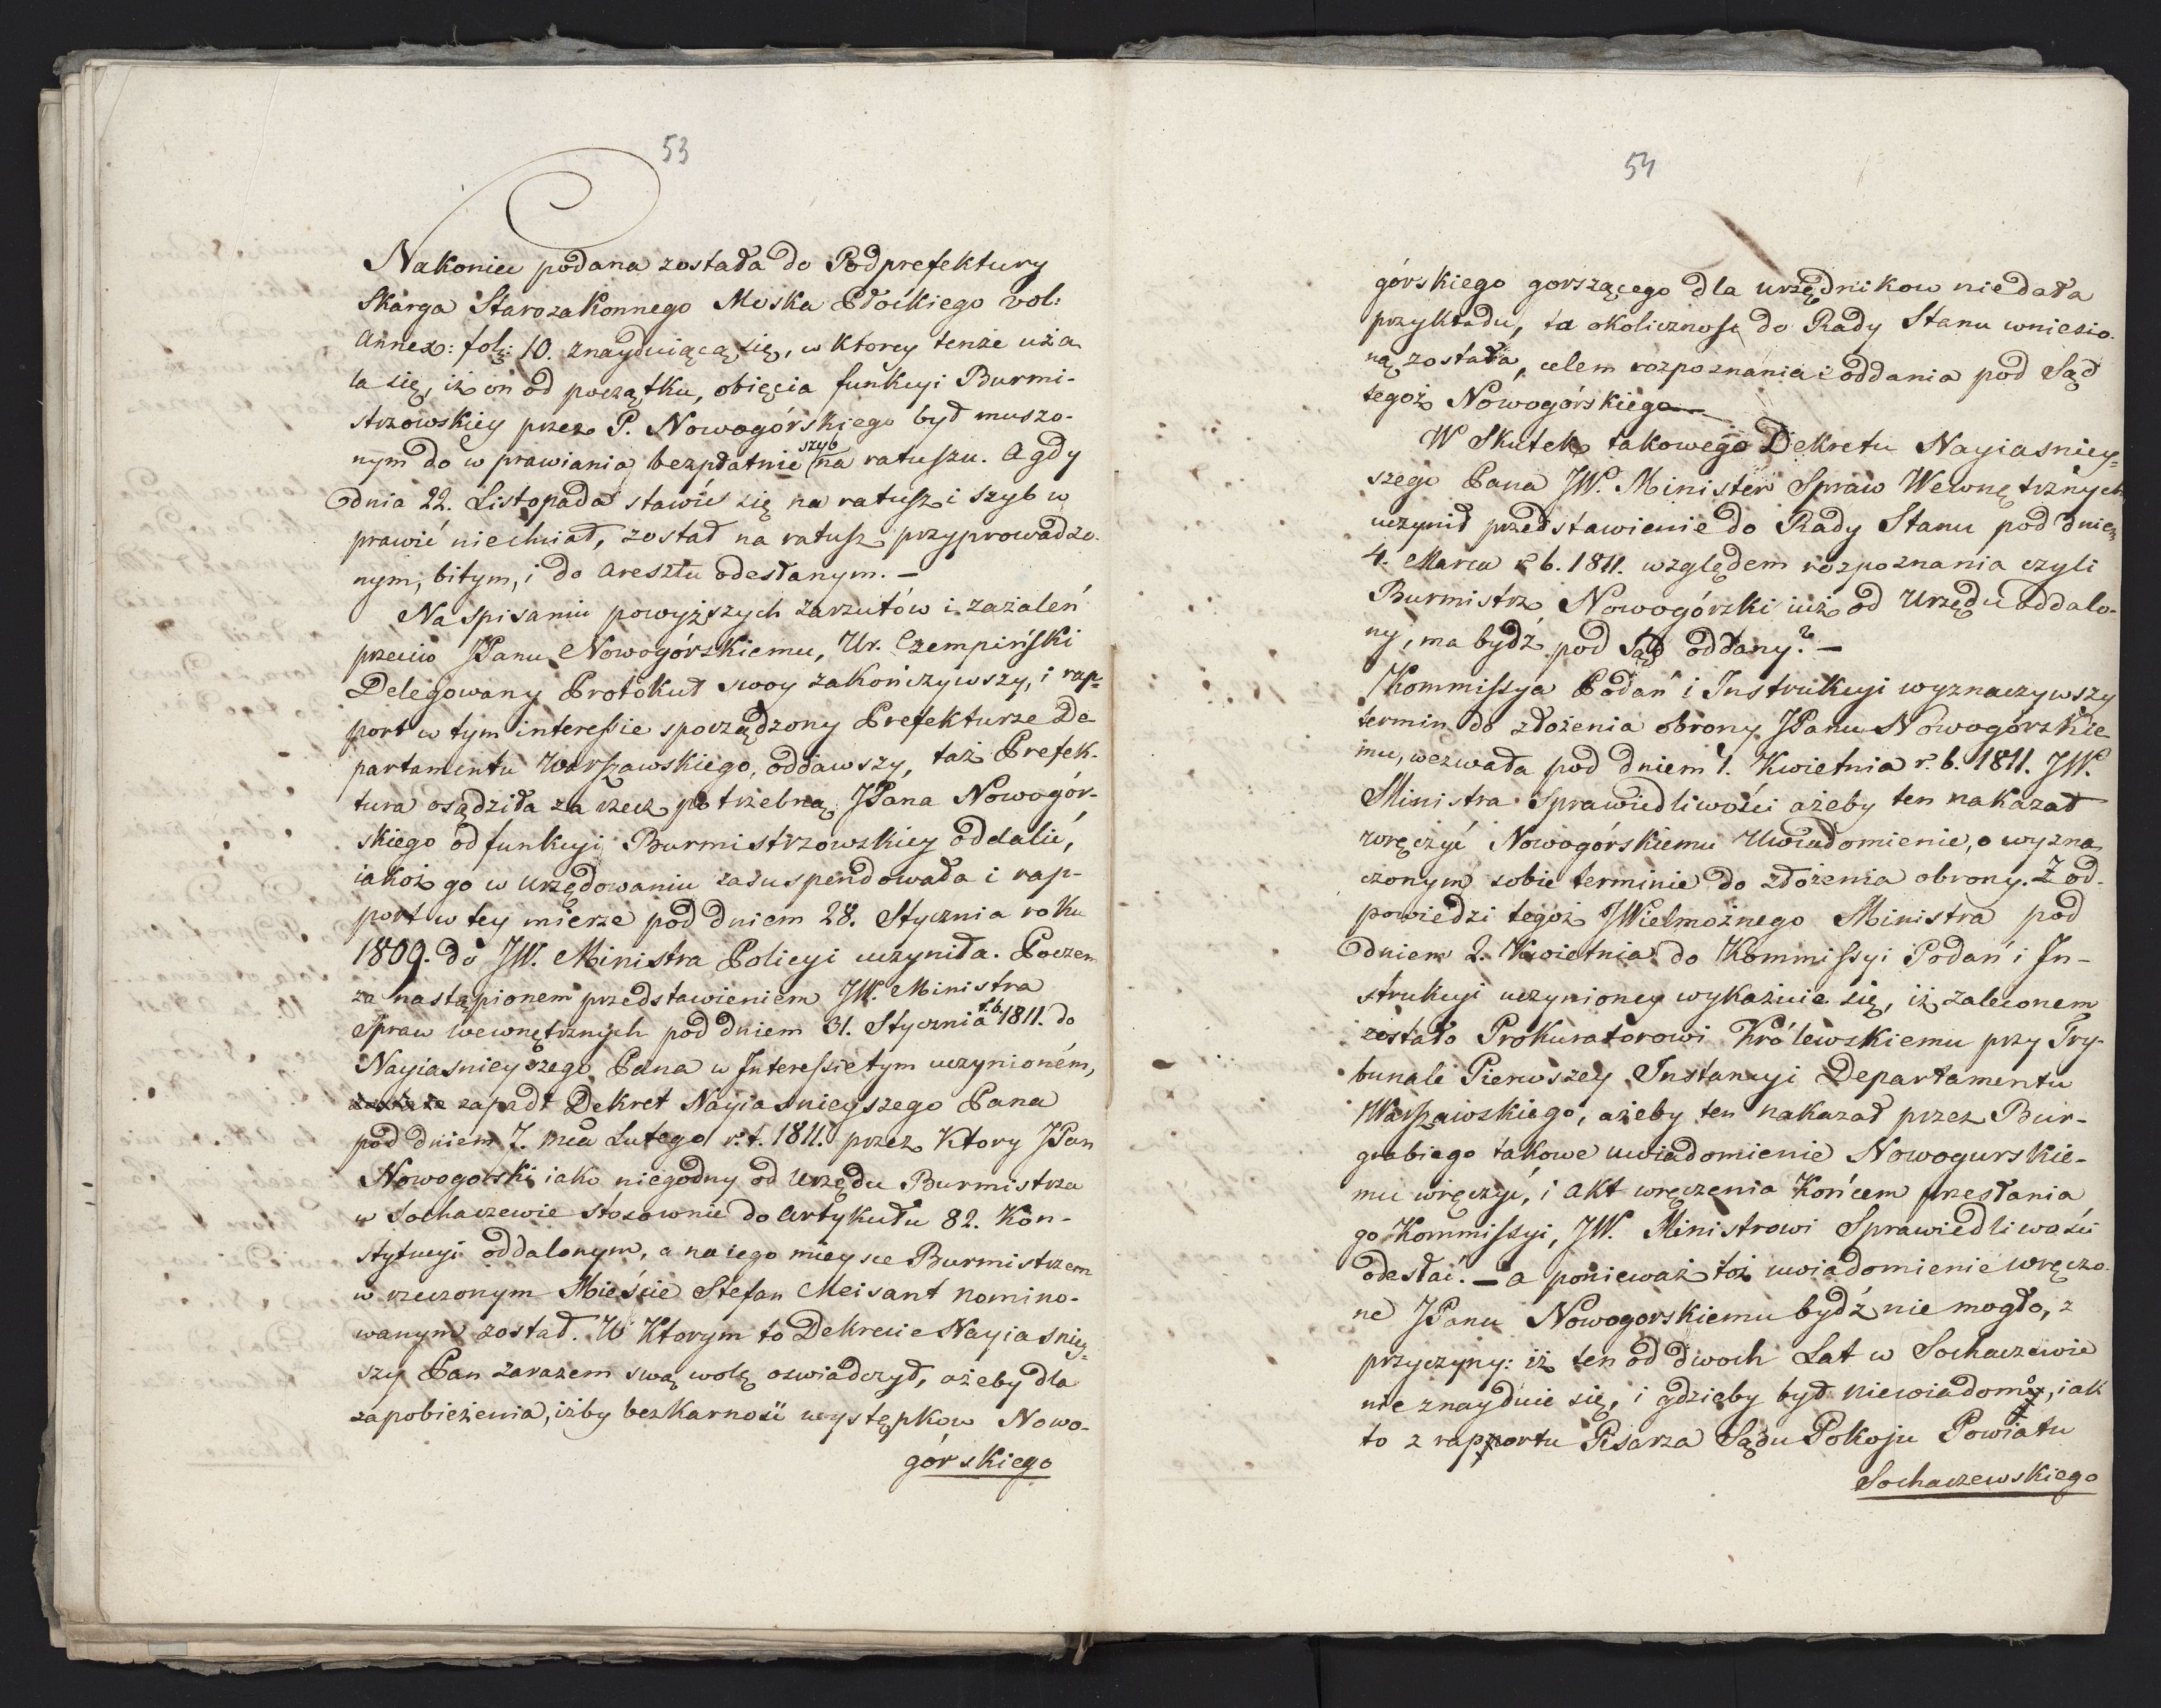 53
Nakoniec podana została do Podprefektury
Skarga Starozakonnego Moska Płockiego vol:
Annex: foly: 10. znayduiącą się, w ktorey tenże uża
la się, iż on od początku, obięcia funkcyi Burmi-
strzowskiey przez P. Nowogórskiego był muszo-
nym do w prawiania bezpłatnie szyb na ratuszu. A gdy
dnia 22. Listopada stawić się na ratusz i szyb w
prawić niechciał, został na ratusz przyprowadzo-
nym, bitym, i do Aresztu odesłanym. —
Na spisaniu powyższych zarzutów i zażaleń
przeciw JPanu Nowogórskiemu, Ur. Czempiński
Delegowany Protokuł swoy zakończywszy, i rap-
port w tym interessie sporządzony Prefekturze De
partamentu Warszawskiego, oddawszy, taż Prefek-
tura osądziła za rzecz potrzebną JPana Nowogór-
skiego od funkcyi Burmistrzowskiey oddalić,
iakoż go w urzędowaniu zasuspendowała i rap-
port w tey mierze pod dniem 28. Stycznia roku
1809. do JW. Ministra Policyi uczyniła. Poczem
za nastąpionem przedstawieniem JW. Ministra
Spraw wewnętrznych pod dniem 31. Stycznia r.b. 1811. do
Nayiasnieyszego Pana w Interessie tym uczynioném,
zapadł Dekret Nayiasnieyszego Pana
pod dniem 7. mca Lutego r. t. 1811. przez ktory JPan
Nowogorski iako niegodny od Urzędu Burmistrza
w Sochaczewie stósownie do Artykułu 82. Kon-
stytucyi oddalonym, a na iego mieysce Burmistrzem
w rzeczonym Mieście Stefan Meisant nomino-
wanym został. W Ktorym to Dekrecie Nayiasniey-
szy Pan zarazem swą wolę oswiadczył, ażeby dla
zapobieżenia, iżby bezkarność występkow Nowo-
górskiego
54
górskiego gorszącego dla urzędnikow niedała
przykładu, ta okoliczność do Rady Stanu wniesio-
ną została, celem rozpoznania i oddania pod Sąd
tegoż Nowogórskiego —
W Skutek takowego Dekretu Nayiasniey-
szego Pana JW. Minister Spraw Wewnętrznych
uczynił przedstawienie do Rady Stanu pod dniem
4. Marca r. b. 1811. względem rozpoznania czyli
Burmistrz Nowogórzki iuż od Urzędu oddalo-
ny, ma bydź pod Sąd oddany? —
Kommissya Podań i Instrukcyi wyznaczywszy
termin do złożenia obrony JPanu Nowogórzkie
mu, wezwała pod dniem 1. Kwietnia r. b. 1811. JW.
Ministra Sprawiedliwości ażeby ten nakazał
wręczyć Nowogórskiemu Uwiadomienie, o wyzna
czonym sobie terminie do złożenia obrony. Z od-
powiedzi tegoż JWielmożnego Ministra pod
dniem 2. Kwietnia do Kommissyi Podań i In-
strukcyi uczynioney wykazuie się, iż zaleconem
zostało Prokuratorowi Królewskiemu przy Try-
bunale Pierwszey Instancyi Departamentu
Warszawskiego, ażeby ten nakazał przez Bur-
grabiego takowe uwiadomienie Nowogurskie-
mu wręczyć, i Akt wręczenia Końcem przesłania
go Kommissyi, JW. Ministrowi Sprawiedliwości
odesłać. — a ponieważ toż uwiadomienie wręczo-
ne JPanu Nowogorskiemu bydź nie mogło, z
przyczyny: iż ten od dwoch Lat w Sochaczewie
nie znayduie się, i gdzieby był niewiadomo, iak
to z rapportu Pisarza Sądu Pokoju Powiatu
Sochaczewskiego